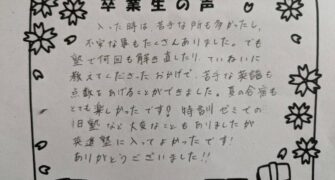 卒業生の声
入った時は苦手な所も多かったし、
不安な事もたくさんありました。でも
塾で何回も解き直したり、ていねいに
教えてくださったおかげで、苦手な英語も
点数をあげることができました。夏の合宿も
とても楽しかったです! 特別ゼミでの
旧塾など大変なこともありましたが
英進塾に入ってよかったです!
ありがとうございました!!